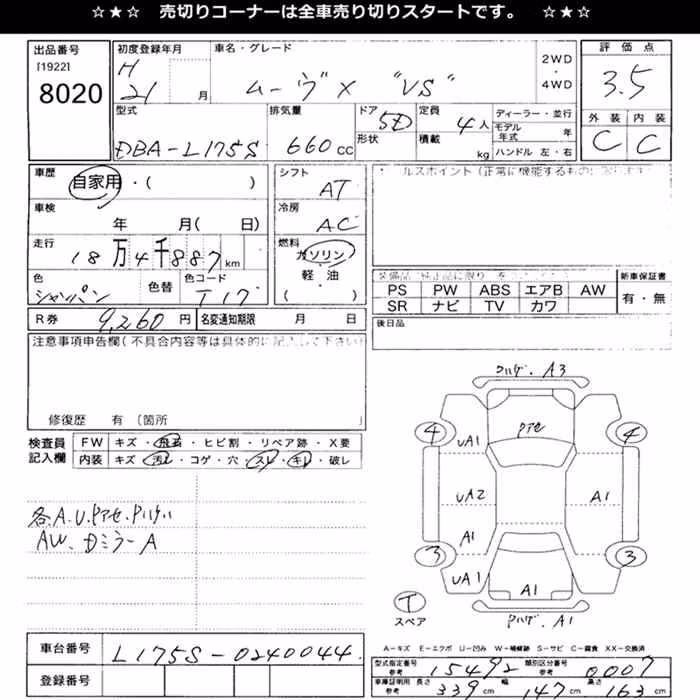 ☆★☆ 売切りコーナーは全車売り切りスタートです。 ☆★☆
出品番号 初度登録年月 車名・グレード 2WD ・ 4WD 評価点
[1922] 8020 H 21 月 ムーヴX "VS" 3.5
型式 排気量 ドア 5D 定員 4人 ディーラー・並行 外装 内装
DBA-L175S 660cc 形状 積載 kg モデル年式 年 C C
ハンドル 左・右
車歴 自家用・( ) シフト AT
車検 年 月( 日) 冷房 AC
走行 18万4千887km 燃料 ガソリン
軽・油
( )
色 シャンパン 色替 色コード T17
R券 9,260円 名変通知期限 月 日
ルスポイント(正常に機能するものに
装備品
PS PW ABS エアB AW
SR ナビ TV カワ
新車保証書 有・無
後日品
注意事項申告欄(不具合内容等は具体的に記入して下さい)
修復歴 有 [箇所
検査員記入欄 FW キズ・飛石・ヒビ割・リペア跡・X要
内装 キズ・汚レ・コゲ・穴・スレ・キレ・破レ
各A.U.Pアセ.Pハゲ
AW.Dミラ-A
Pハゲ.A3
4 UA1 Pアセ 4
UA2 A1
A1
3 UA1 A1 3
T スペア Pハゲ.A1
A-キズ E-エクボ U-凹み W-補修跡 S-サビ C-腐食 XX-交換済
車台番号 L175S-0240044
登録番号
型式指定番号 参考 15492 類別区分番号 参考 0007
車庫証明用 参考 長さ 339cm 幅 147cm 高さ 163cm